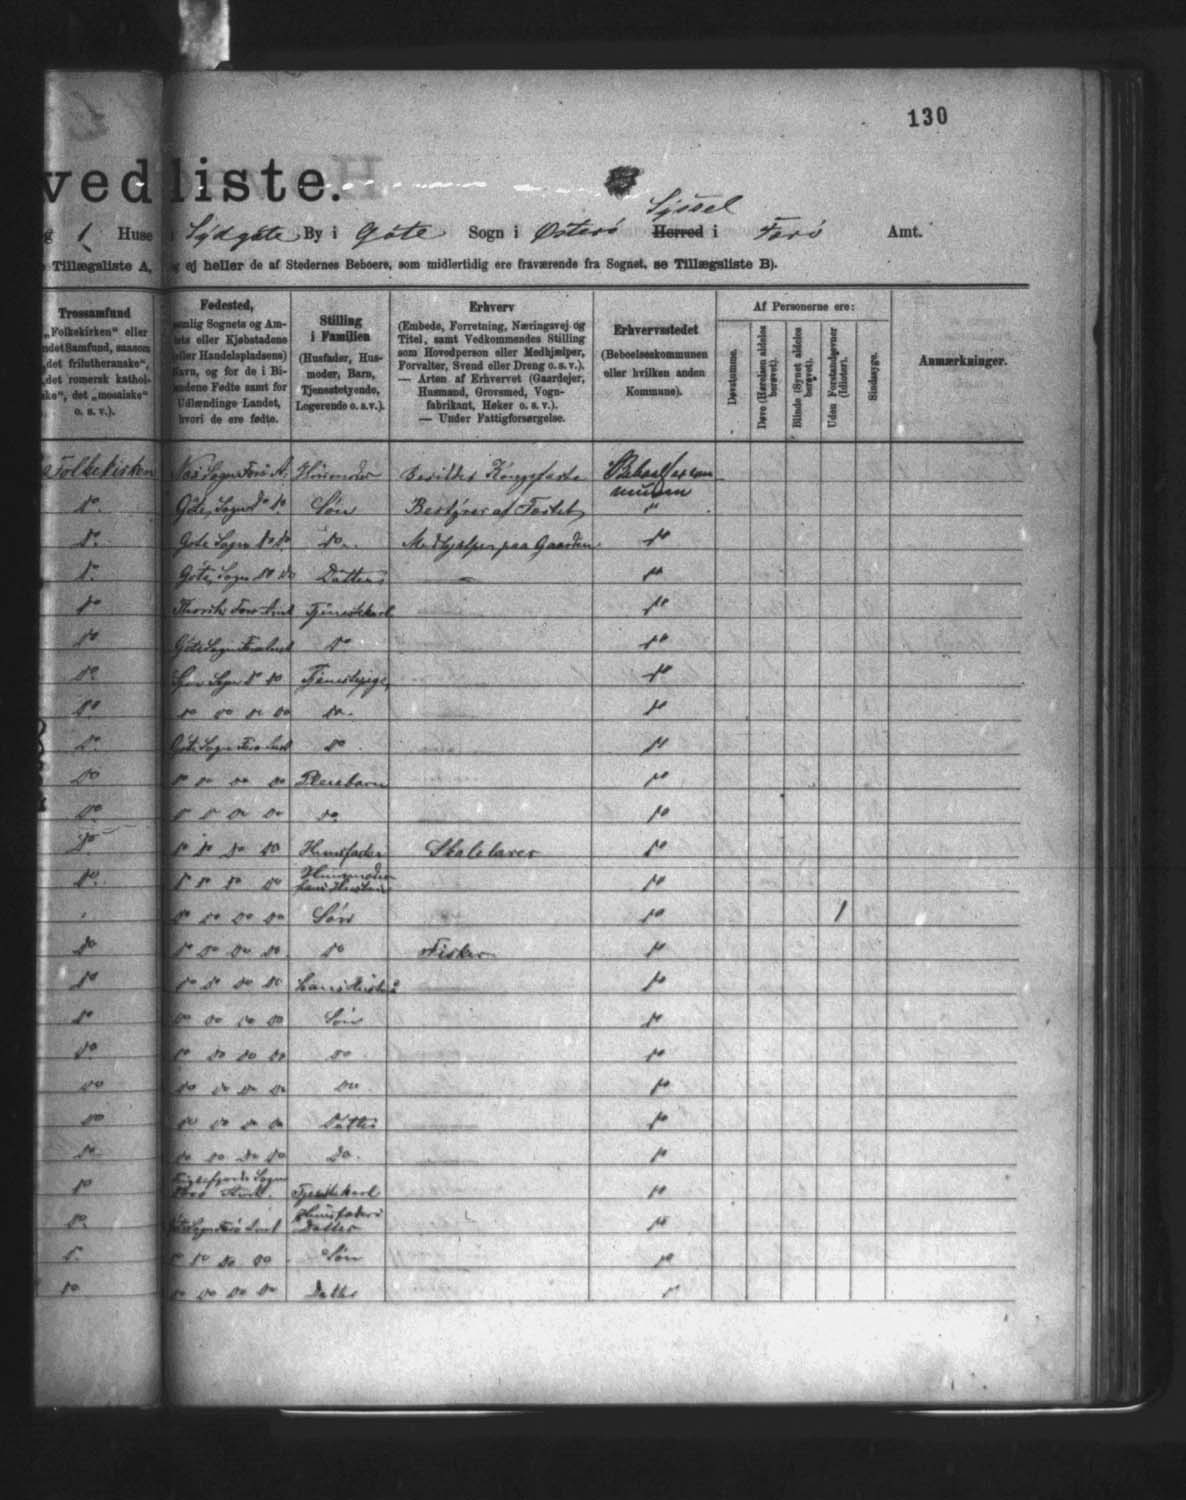 130
vedliste.
Syssel
g 1 Huse i Sydgøte By i Gøte Sogn i Østerø Herred i Færø Amt.
Tillægsliste A, og ej heller de af Stedernes Beboere, som midlertidig ere fraværende fra Sognet, se Tillægsliste B).
Trossamfund
„Folkekirken" eller
ndet Samfund, saasom
det frilutheranske",
det romersk kathol-
ske", det „mosaiske"
o. s. v.).
Fødested,
nemlig Sognets og Am-
tets eller Kjøbstadens
(eller Handelspladsens)
Navn, og for de i Bi-
landene Fødte samt for
Udlændinge Landet,
hvori de ere fødte.
Stilling
i Familien
(Husfader, Hus-
moder, Barn,
Tjenestetyende,
Logerende o. s. v.).
Erhverv
(Embede, Forretning, Næringsvej og
Titel, samt Vedkommendes Stilling
som Hovedperson eller Medhjælper,
Forvalter, Svend eller Dreng o. s. v.).
— Arten af Erhvervet (Gaardejer,
Husmand, Grovsmed, Vogn-
fabrikant, Høker o. s. v.).
— Under Fattigforsørgelse.
Erhvervsstedet
(Beboelseskommunen
eller hvilken anden
Kommune).
Af Personerne ere:
Døvstumme.
Døve (Hørelsen aldeles
berøvet).
Blinde (Synet aldeles
berøvet).
Uden Forstandsevner
(Idioter).
Sindssyge.
Anmærkninger.
Folkekirken Næs Sogn Færø A. Husmoder
do Gøte Sogn do do Søn Bestyrer af Fæstet "
do Gøte Sogn do do do Medhjælper paa Gaarden do
do Gøte Sogn do do Datter — do
do Færø Amt Tjenestekarl do
do Gøte Sogn Færø Amt do do
do Sogn do do Tjenestepige do
do do do do do do do
do Gøte Sogn Færø Amt do do
do do do do do Plejebarn do
do do do do do do do
do do do do do Husfader Skolelærer do
do do do do do Husmoder
hans Hustru do
do do do do Søn do 1
do do do do do do Fisker do
do do do do do hans Hustru do
do do do do do Søn do
do do do do do do do
do do do do do do do
do do do do do Datter do
do do do do do do do
do Sogn
Færø Amt. Tjenestekarl do
do Gøte Sogn Færø Amt Husfaders
Datter do
do do do do do Søn do
do do do do do Datter do